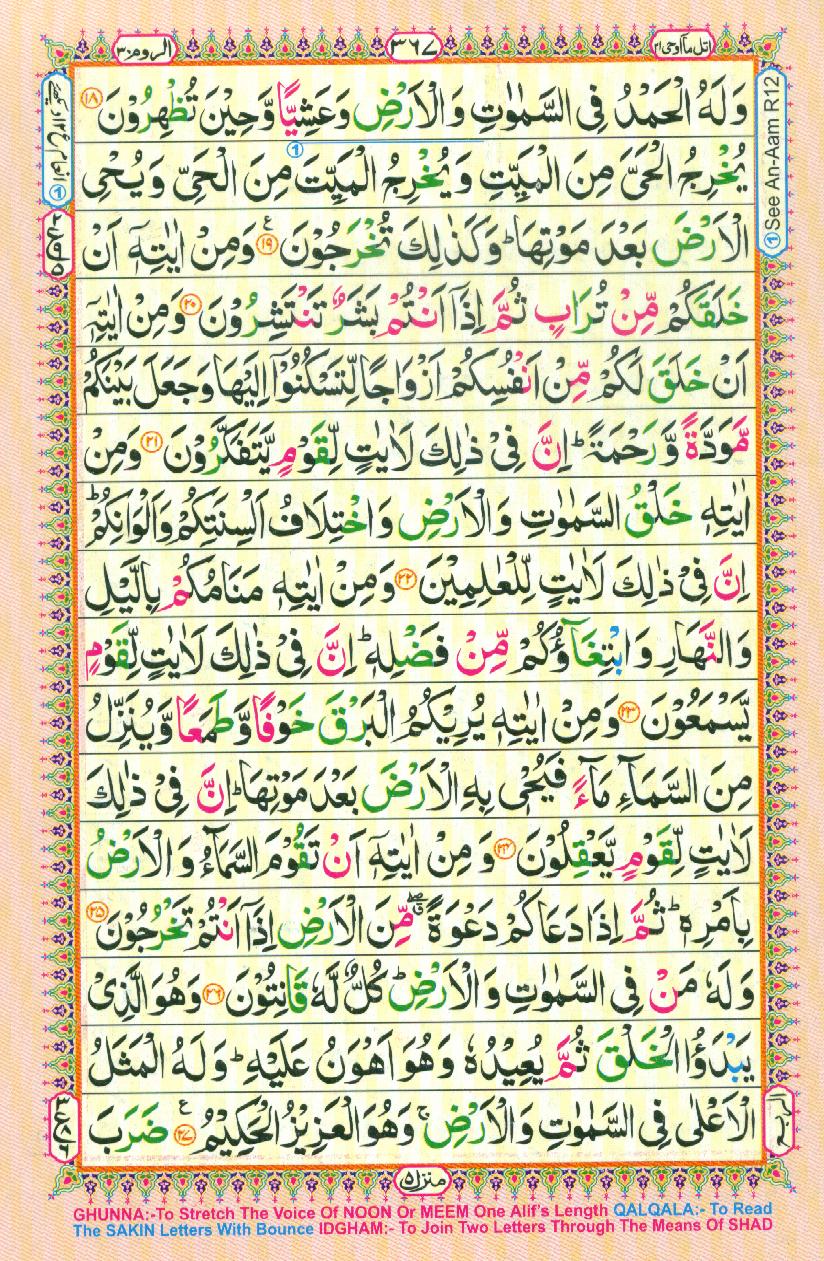 اتل ما اوحی ۲۱
۳۶۷
الروم ۳۰
وَلَهُ الْحَمْدُ فِى السَّمٰوٰتِ وَالْاَرْضِ وَعَشِيًّا وَّحِيْنَ تُظْهِرُوْنَ ۱۸
يُخْرِجُ الْحَىَّ مِنَ الْمَيِّتِ وَيُخْرِجُ الْمَيِّتَ مِنَ الْحَىِّ وَيُحْىِ
الْاَرْضَ بَعْدَ مَوْتِهَا ؕ وَكَذٰلِكَ تُخْرَجُوْنَ ۱۹ ع وَمِنْ اٰيٰتِهٖۤ اَنْ
خَلَقَكُمْ مِّنْ تُرَابٍ ثُمَّ اِذَاۤ اَنْتُمْ بَشَرٌ تَنْتَشِرُوْنَ ۲۰ وَمِنْ اٰيٰتِهٖۤ
اَنْ خَلَقَ لَكُمْ مِّنْ اَنْفُسِكُمْ اَزْوَاجًا لِّتَسْكُنُوْۤا اِلَيْهَا وَجَعَلَ بَيْنَكُمْ
مَّوَدَّةً وَّرَحْمَةً ؕ اِنَّ فِىْ ذٰلِكَ لَاٰيٰتٍ لِّقَوْمٍ يَّتَفَكَّرُوْنَ ۲۱ وَمِنْ
اٰيٰتِهٖ خَلْقُ السَّمٰوٰتِ وَالْاَرْضِ وَاخْتِلَافُ اَلْسِنَتِكُمْ وَاَلْوَانِكُمْ ؕ
اِنَّ فِىْ ذٰلِكَ لَاٰيٰتٍ لِّلْعٰلِمِيْنَ ۲۲ وَمِنْ اٰيٰتِهٖ مَنَامُكُمْ بِالَّيْلِ
وَالنَّهَارِ وَابْتِغَآؤُكُمْ مِّنْ فَضْلِهٖ ؕ اِنَّ فِىْ ذٰلِكَ لَاٰيٰتٍ لِّقَوْمٍ
يَّسْمَعُوْنَ ۲۳ وَمِنْ اٰيٰتِهٖ يُرِيْكُمُ الْبَرْقَ خَوْفًا وَّطَمَعًا وَّيُنَزِّلُ
مِنَ السَّمَآءِ مَآءً فَيُحْىٖ بِهِ الْاَرْضَ بَعْدَ مَوْتِهَا ؕ اِنَّ فِىْ ذٰلِكَ
لَاٰيٰتٍ لِّقَوْمٍ يَّعْقِلُوْنَ ۲۴ وَمِنْ اٰيٰتِهٖۤ اَنْ تَقُوْمَ السَّمَآءُ وَالْاَرْضُ
بِاَمْرِهٖ ؕ ثُمَّ اِذَا دَعَاكُمْ دَعْوَةً مِّنَ الْاَرْضِ اِذَاۤ اَنْتُمْ تَخْرُجُوْنَ ۲۵
وَلَهٗ مَنْ فِى السَّمٰوٰتِ وَالْاَرْضِ ؕ كُلٌّ لَّهٗ قَانِتُوْنَ ۲۶ وَهُوَ الَّذِىْ
يَبْدَؤُا الْخَلْقَ ثُمَّ يُعِيْدُهٗ وَهُوَ اَهْوَنُ عَلَيْهِ ؕ وَلَهُ الْمَثَلُ
الْاَعْلٰى فِى السَّمٰوٰتِ وَالْاَرْضِ ۚ وَهُوَ الْعَزِيْزُ الْحَكِيْمُ ۲۷ ع ضَرَبَ
① See An-Aam R12
منزل ۵
GHUNNA:-To Stretch The Voice Of NOON Or MEEM One Alif's Length QALQALA:- To Read
The SAKIN Letters With Bounce IDGHAM:- To Join Two Letters Through The Means Of SHAD